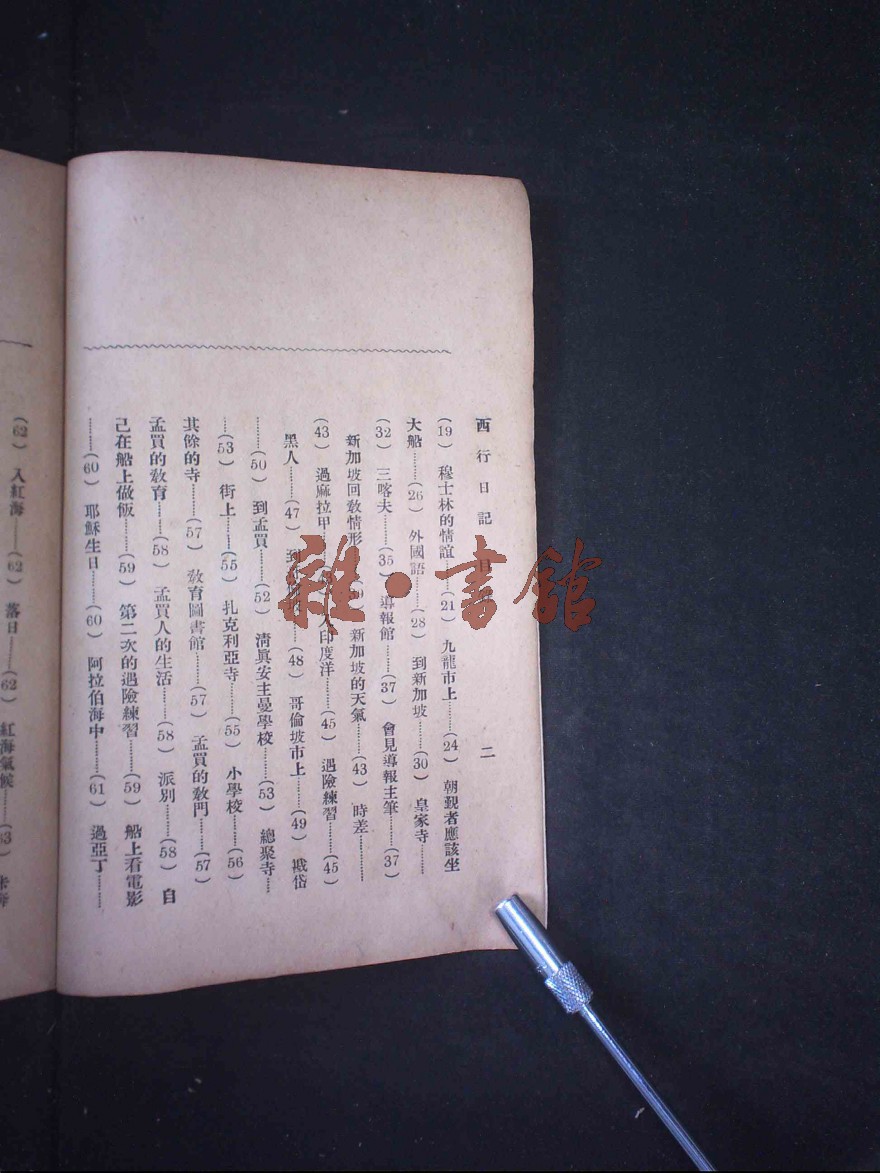 西行日記 目 二
(19) 穆士林的情誼……(21) 九龍市上……(24) 朝覲者應該坐
大船……(26) 外國語……(28) 到新加坡……(30) 皇家寺……
(32) 三喀夫……(35) 導報館……(37) 會見導報主筆……(37)
新加坡回教情形…… 新加坡的天氣……(43) 時差……
(43) 過麻拉甲…… 印度洋……(45) 遇險練習……(45)
黑人……(47) 到……(48) 哥倫坡市上……(49) 戴岱
……(50) 到孟買……(52) 清眞安主曼學校……(53) 總聚寺……
…(53) 街上……(55) 扎克利亞寺……(55) 小學校……(56)
其餘的寺……(57) 敎育圖書館……(57) 孟買的敎門……(57)
孟買的敎育……(58) 孟買人的生活……(58) 派別……(58) 自
己在船上做飯……(59) 第二次的遇險練習……(59) 船上看電影
……(60) 耶穌生日……(60) 阿拉伯海中……(61) 過亞丁……
(62) 入紅海……(62) 落日……(62) 紅海氣候……(63)
雜·書館